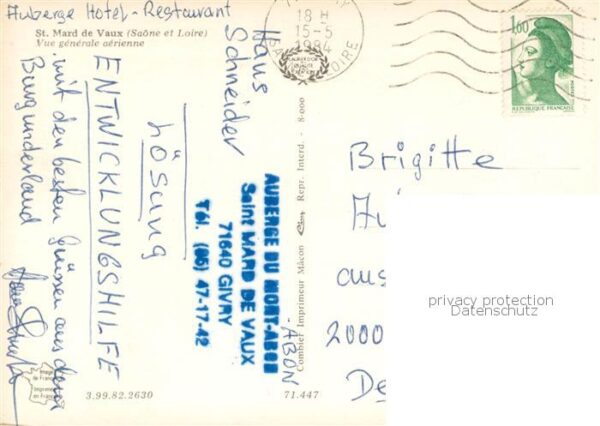 Auberge Hotel-Restaurant
St. Mard de Vaux (Saône et Loire)
Vue générale aérienne
18 H
15-5
1984
LOIRE
1,60
REPUBLIQUE FRANÇAISE
Hans
Schneider
Lösung
ENTWICKLUNGSHILFE
mit den besten Grüssen aus dem
Burgunderland
AUBERGE DU MONT-ABON
Saint MARD DE VAUX
71640 GIVRY
Tél. (85) 47-17-42
ABON
Combier Imprimeur Mâcon
Repr. Interd. - 8-000
Brigitte
aus
2000
De
privacy protection
Datenschutz
Image
de France
Imprimé
en France
3.99.82.2630
71.447